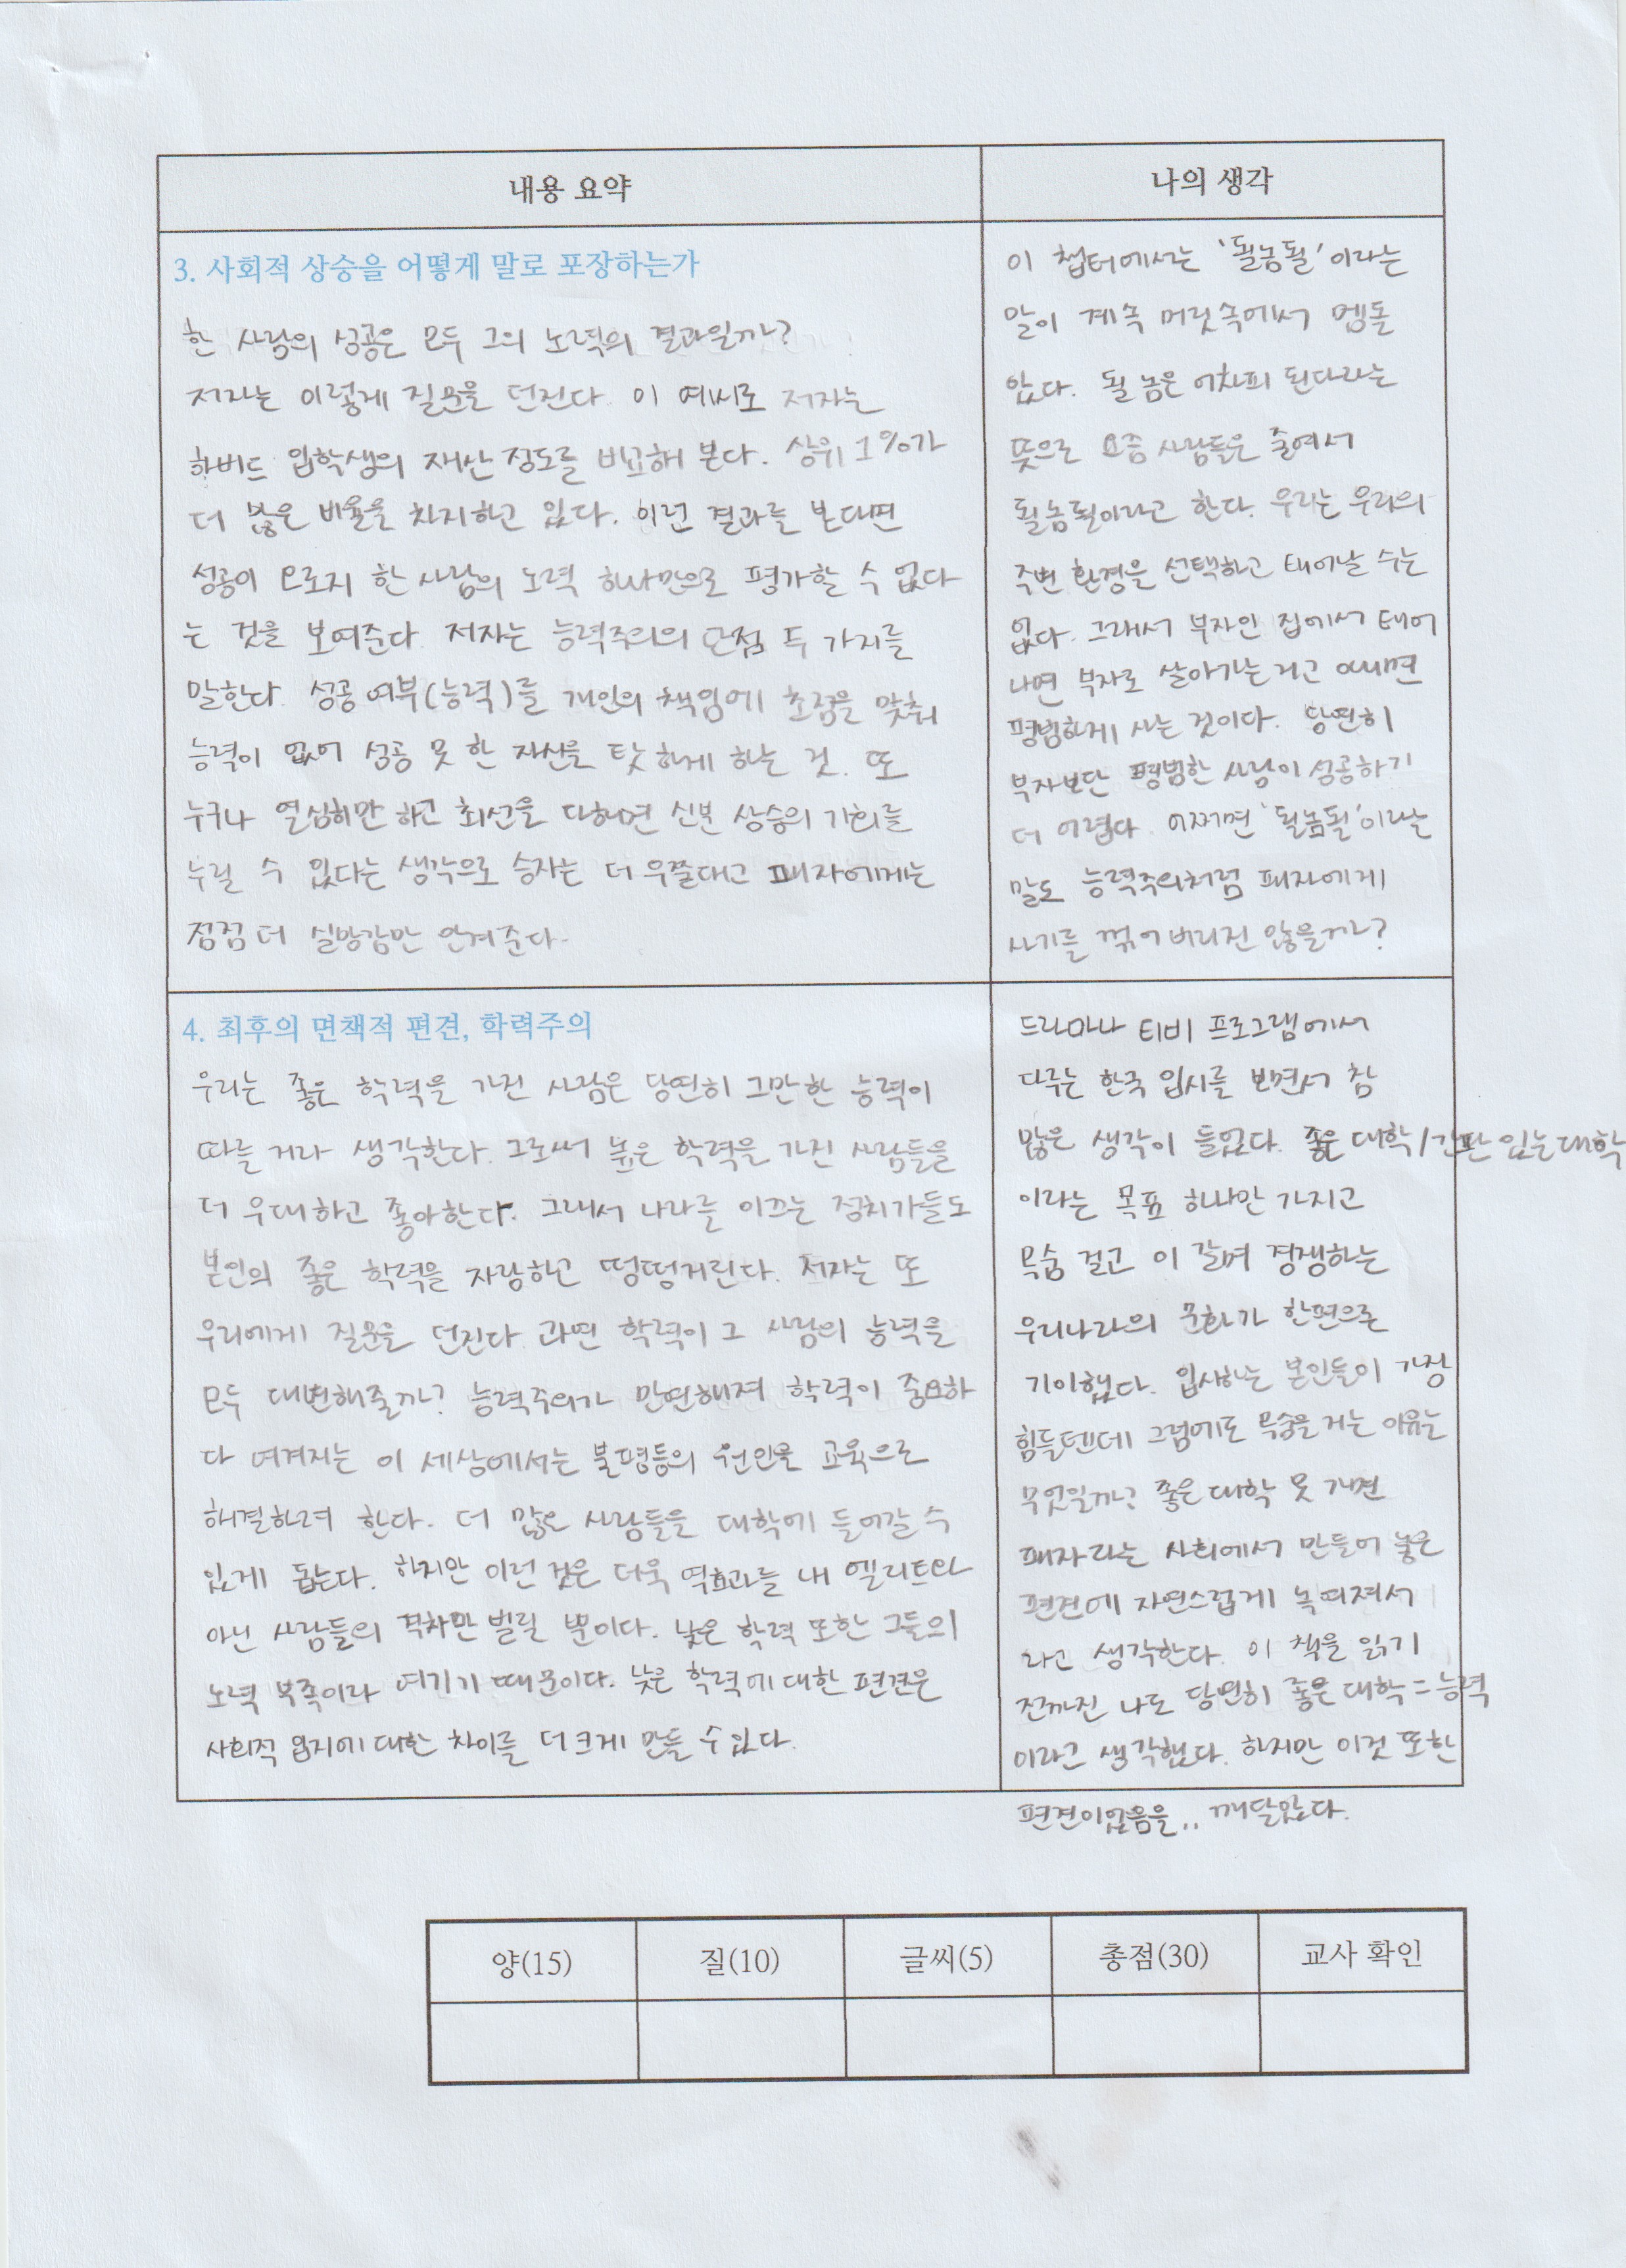 내용 요약
나의 생각
3. 사회적 상승을 어떻게 말로 포장하는가
한 사람의 성공은 모두 그의 노력의 결과일까?
저자는 이렇게 질문을 던진다. 이 예시로 저자는
하버드 입학생의 재산 정도를 비교해 본다. 상위 1%가
더 많은 비율을 차지하고 있다. 이런 결과를 본다면
성공이 오로지 한 사람의 노력 하나만으로 평가할 수 없다
는 것을 보여준다. 저자는 능력주의의 단점 두 가지를
말한다. 성공 여부(능력)를 개인의 책임에 초점을 맞춰
능력이 없어 성공 못 한 자신을 탓하게 하는 것. 또
누구나 열심히만 하고 최선을 다하면 신분 상승의 기회를
누릴 수 있다는 생각으로 승자는 더 우쭐대고 패자에게는
점점 더 실망감만 안겨준다.
이 챕터에서는 '될놈될'이라는
말이 계속 머릿속에서 맴돌
았다. 될 놈은 어차피 된다라는
뜻으로 요즘 사람들은 줄여서
될놈될이라고 한다. 우리는 우리의
주변 환경을 선택하고 태어날 수는
없다. 그래서 부자인 집에서 태어
나면 부자로 살아가는거고 아니면
평범하게 사는 것이다. 당연히
부자보단 평범한 사람이 성공하기
더 어렵다. 어쩌면 '될놈될'이라는
말도 능력주의처럼 패자에게
사기를 꺾어버리진 않을까?
4. 최후의 면책적 편견, 학력주의
우리는 좋은 학력을 가진 사람은 당연히 그만한 능력이
따를 거라 생각한다. 그로써 높은 학력을 가진 사람들을
더 우대하고 좋아한다. 그래서 나라를 이끄는 정치가들도
본인의 좋은 학력을 자랑하고 떵떵거린다. 저자는 또
우리에게 질문을 던진다. 과연 학력이 그 사람의 능력을
모두 대변해줄까? 능력주의가 만연해져 학력이 중요하
다 여겨지는 이 세상에서는 불평등의 원인을 교육으로
해결하려 한다. 더 많은 사람들을 대학에 들어갈 수
있게 돕는다. 하지만 이런 것은 더욱 역효과를 내 엘리트와
아닌 사람들의 격차만 벌릴 뿐이다. 낮은 학력 또한 그들의
노력 부족이라 여기기 때문이다. 낮은 학력에 대한 편견은
사회적 입지에 대한 차이를 더 크게 만들 수 있다.
드라마나 티비 프로그램에서
다루는 한국 입시를 보면서 참
많은 생각이 들었다. 좋은 대학/간판 있는 대학
이라는 목표 하나만 가지고
목숨 걸고 이 갈며 경쟁하는
우리나라의 문화가 한편으로
기이했다. 입시하는 본인들이 가장
힘들텐데 그럼에도 목숨을 거는 이유는
무엇일까? 좋은 대학 못 가면
패자라는 사회에서 만들어 놓은
편견에 자연스럽게 녹여져서
라고 생각한다. 이 책을 읽기
전까진 나도 당연히 좋은 대학=능력
이라고 생각했다. 하지만 이것 또한
편견이었음을.. 깨달았다.
양(15)
질(10)
글씨(5)
총점(30)
교사 확인